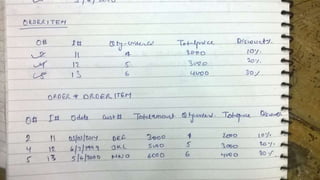 ORDERITEM
O# I# Qty-ordered Totalprice Discount%
2 11 4 3000 10%
4 12 5 3100 20%
5 13 6 4400 30%
ORDER & ORDERITEM
O# I# Odate Cust# Totalamount Qtyordered Totalprice Discount
2 11 DEF 3000 4 2000 10%
4 12 6/3/1999 JKL 5 3000 20%
5 13 5/6/2000 MNO 6000 6 4400 30%